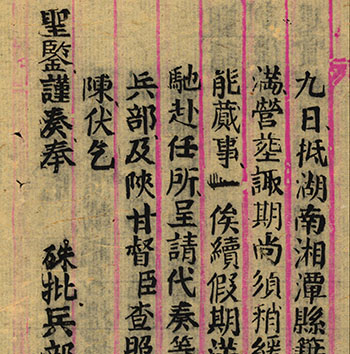 九日抵湖南湘潭縣籍
滿營塟諏期尚須稍緩
能蕆事一俟續假期滿
馳赴任所呈請代奏等
兵部及陝甘督臣查照
陳伏乞
聖鑒謹奏奉 硃批兵部